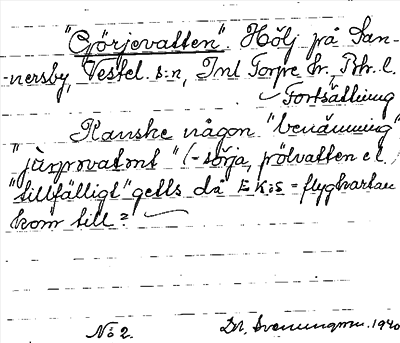 "Görjevatten". Hölj på San-
nersby, Vestel s:n, Inl Torpe hr., Bhl.
Fortsättning
Kanske någon "benämning"
"järprovatnt" (-sörja, pölvatten el
"tillfälligt" getts då EK:S = flygkartan
kom till?
No 2. D.A. Svenungsson. 1940